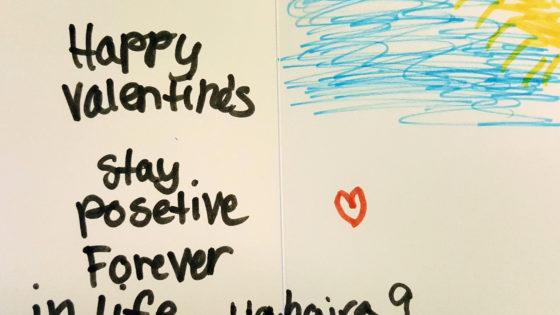 Happy
Valentine's
Stay
posetive
Forever
in life